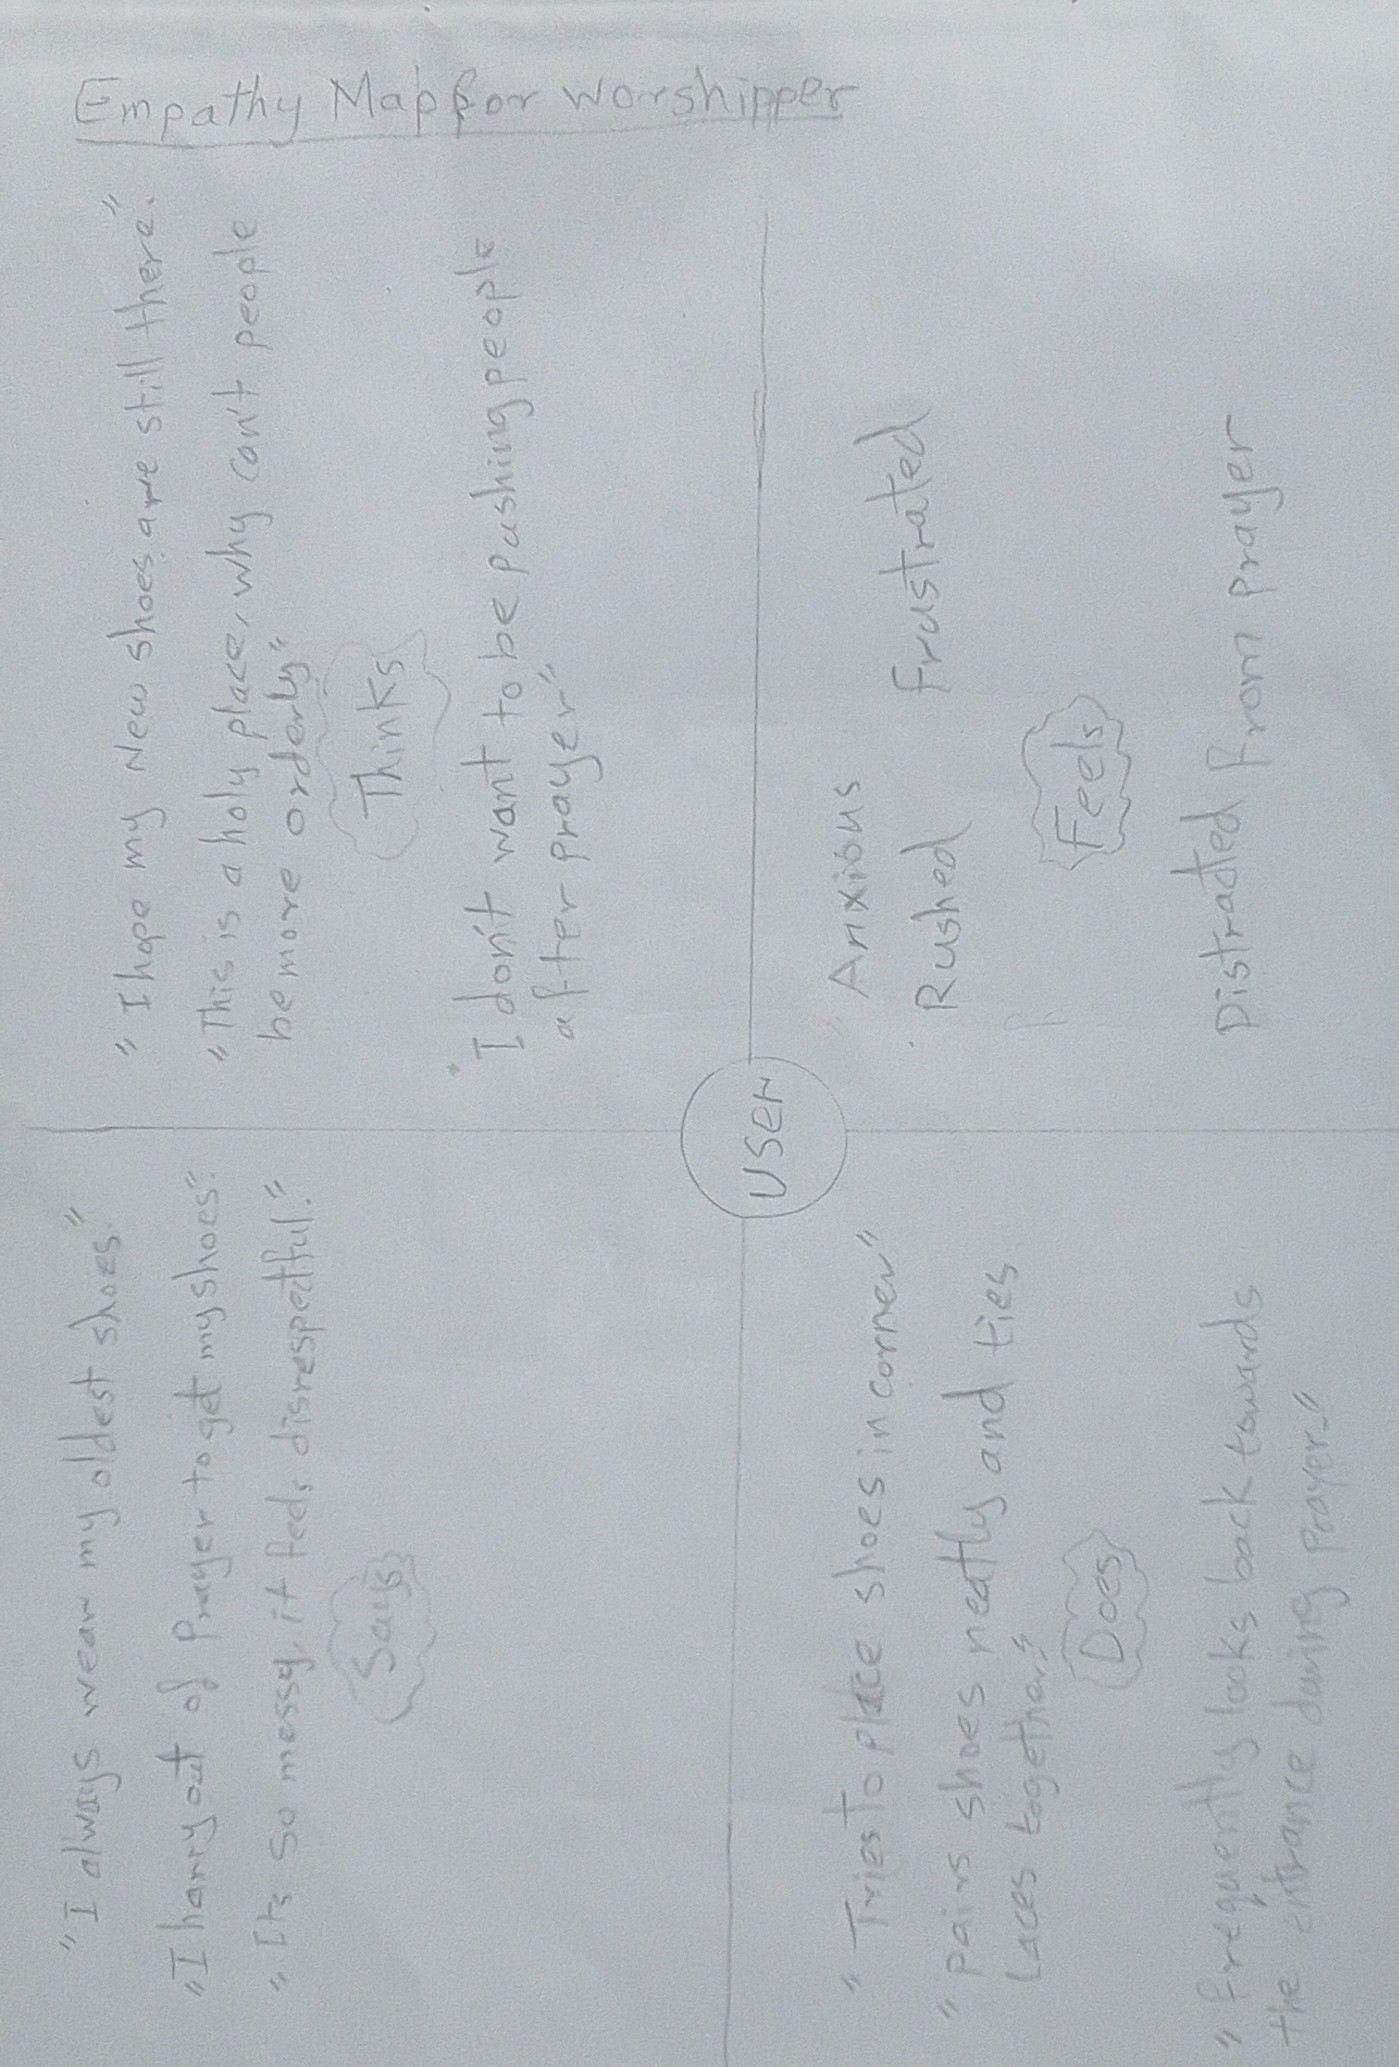 Empathy Map for Worshipper
"I always wear my oldest shoes."
"I harry out of Prayer to get my shoes".
"Its so messy, it feels disrespectful."
Says
"I hope my New shoes are still there."
"This is a holy place, why can't people
be more orderly"
Thinks
"I don't want to be pushing people
after prayer"
USER
"Tries To place shoes in corner"
"Pairs shoes neatly and ties
Laces together"
Does
"frequently looks back towards
the entrance during prayer."
Anxious
Rushed
Frustrated
Feels
Distracted from prayer